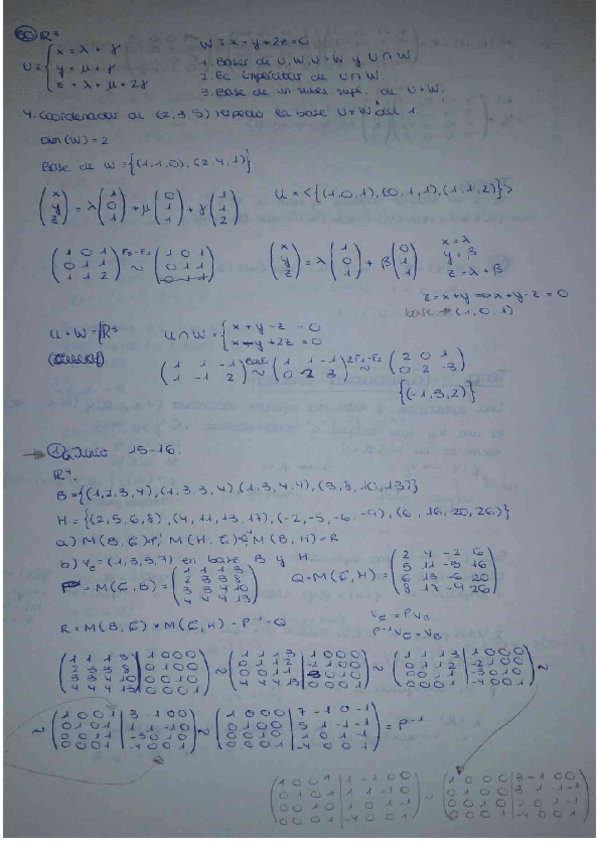 50 R³
U = { x = λ + γ
y = μ + γ
z = λ + μ + 2γ
W = x - y + 2z = 0
1. Bases de U, W, U + W y U ∩ W
2. Ec implícitas de U ∩ W.
3. Base de un sub. supl. de U + W.
4. Coordenadas de (2,3,5) respecto la base U + W del 1.
dim (W) = 2
Base de W = {(1,1,0), (2,4,1)}
(x y z) = λ (1 0 1) + μ (0 1 1) + γ (1 1 2)
U = <{(1,0,1), (0,1,1), (1,1,2)}>
(1 0 1 / 0 1 1 / 1 1 2) F3-F1 ~ (1 0 1 / 0 1 1 / 0 1 1)
(x y z) = λ (1 0 1) + β (0 1 1)
x = λ
y = β
z = λ + β
z = x + y ⇒ x + y - z = 0
base → (1, 0, 1)
U + W = R³
U ∩ W = { x + y - z = 0
x - y + 2z = 0
(1 1 -1 / 1 -1 2) ~ (1 1 -1 / 0 -2 3) ~ (2 0 1 / 0 2 -3)
{(-1,3,2)}
→ 1 Junio 15-16.
R⁴.
B = {(1,2,3,4), (1,3,3,4), (1,3,4,4), (3,8,10,13)}
H = {(2,5,6,8), (4,11,13,17), (-2,-5,-6,-4), (6,16,20,26)}
a) M(B,C) = P, M(H,C) = Q, M(B,H) = R
b) V_C = (1,3,5,7) en base B y H.
P = M(C,B) = (1 1 1 3 / 2 3 3 8 / 3 3 4 10 / 4 4 4 13)
Q = M(C,H) = (2 4 -2 6 / 5 11 -5 16 / 6 13 -6 20 / 8 17 -4 26)
V_C = P V_B
P⁻¹ V_C = V_B
R = M(B,C) * M(C,H) = P⁻¹ · Q
(1 1 1 3 | 1 0 0 0 / 2 3 3 8 | 0 1 0 0 / 3 3 4 10 | 0 0 1 0 / 4 4 4 13 | 0 0 0 1) ~ (1 1 1 3 | 1 0 0 0 / 0 1 1 2 | -2 1 0 0 / 0 0 1 1 | -3 0 1 0 / 4 4 4 13 | 0 0 0 1) ~ (1 1 1 3 | 1 0 0 0 / 0 1 1 2 | -2 1 0 0 / 0 0 1 1 | -3 0 1 0 / 0 0 0 1 | -4 0 0 1) ~
~ (1 0 0 1 | 3 -1 0 0 / 0 1 0 1 | 1 1 -1 0 / 0 0 1 1 | -3 0 1 0 / 0 0 0 1 | -4 0 0 1) ~ (1 0 0 0 | 7 -1 0 -1 / 0 1 0 0 | 5 1 -1 -1 / 0 0 1 0 | 1 0 1 -1 / 0 0 0 1 | -4 0 0 1) = P⁻¹